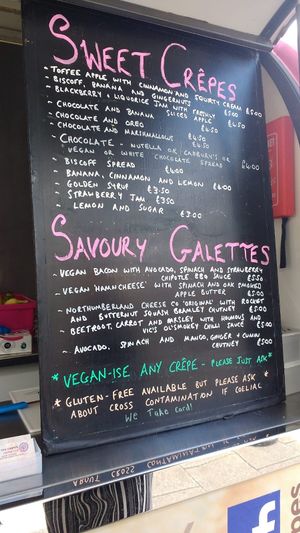 SWEET CRÊPES
- TOFFEE APPLE WITH CINNAMON AND SQUIRTY CREAM £5.00
- BISCOFF, BANANA AND GINGERNUTS £5.00
- BLACKBERRY + LIQUORICE JAM WITH FRESHLY SLICED APPLE £5.00
- CHOCOLATE AND BANANA £4.50
- CHOCOLATE AND OREO £4.50
- CHOCOLATE AND MARSHMALLOWS £4.50
- CHOCOLATE - NUTELLA OR CADBURY'S OR
VEGAN OR WHITE CHOCOLATE SPREAD £4.00
- BISCOFF SPREAD £4.00
- BANANA, CINNAMON AND LEMON £4.00
- GOLDEN SYRUP £3.50
- STRAWBERRY JAM £3.50
- LEMON AND SUGAR £3.00
SAVOURY GALETTES
- VEGAN BACON WITH AVOCADO, SPINACH AND STRAWBERRY
CHIPOTLE BBQ SAUCE £5.50
- VEGAN 'HAM N CHEESE' WITH SPINACH AND OAK SMOKED
APPLE BUTTER £5.50
- NORTHUMBERLAND CHEESE CO 'ORIGINAL' WITH ROCKET
AND BUTTERNUT SQUASH BRAMLEY CHUTNEY £5.00
- BEETROOT, CARROT AND PARSLEY WITH HOUMOUS AND
SMOKEY CHILLI SAUCE £5.00
- AVOCADO, SPINACH AND MANGO, GINGER + CUMIN
CHUTNEY £5.00
* VEGAN-ISE ANY CRÊPE - PLEASE JUST ASK *
* GLUTEN-FREE AVAILABLE BUT PLEASE ASK *
ABOUT CROSS CONTAMINATION IF COELIAC
We Take Card!
f